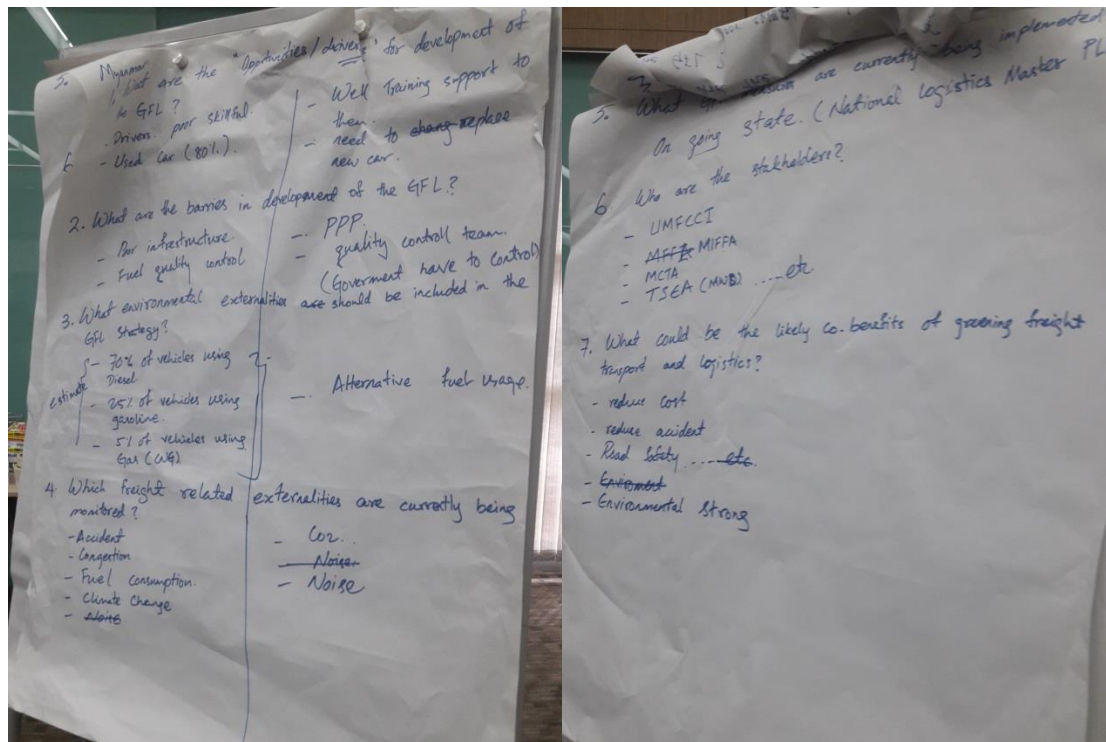 Myanmar
What are the "Opportunities/drivers" for development of
to GFL?
. Drivers. poor skillful.
- Used Car (80%).
- Well Training support to
them.
- need to chang replace
new car.
2. What are the barries in development of the GFL?
- Poor infrastructure.
- Fuel quality control
- PPP.
- quality control team.
(Goverment have to control)
3. What environmental externalities are should be included in the
GFL Strategy?
estimate
- 70% of vehicles using
Diesel
- 25% of vehicles using
gasoline.
- 5% of vehicles using
Gas (CNG)
- Alternative fuel usage.
4. Which freight related externalities are currently being
monitored?
- Accident
- Congestion
- Fuel Consumption.
- Climate Change
- Noise
- Co2..
- Noise
- Noise
5. What are currently being implemented
On going state. (National Logistics Master PL
6. Who are the stakholders?
- UMFCCI
- MIFFA
- MCTA
- TSEA (MNB) ....etc
7. What could be the likely co-benefits of greening freight
transport and logistics?
- reduce Cost
- reduse accident
- Road Safety ....etc.
- Enviroment
- Environmental Strong